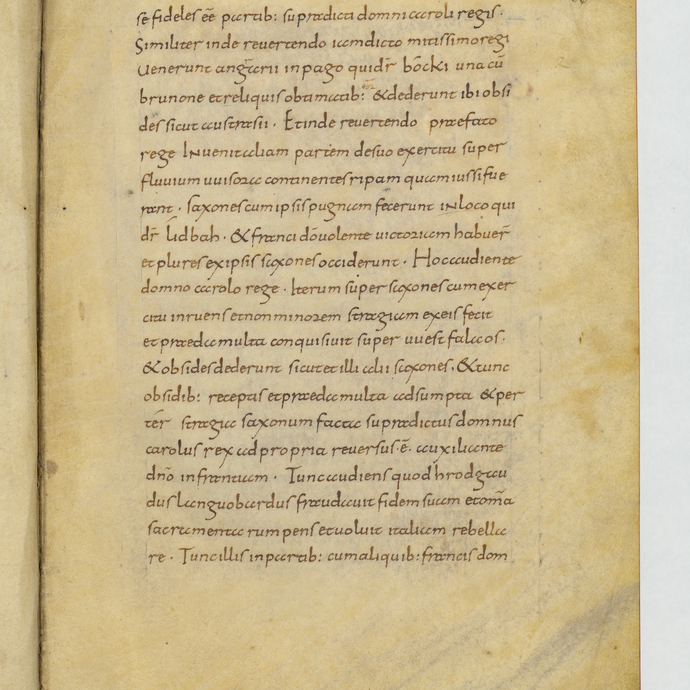 se fideles eē partib: supradicti domni caroli regis.
Similiter inde revertendo iamdicto mitissimo regi
venerunt angrarii in pago qui dr̄ bocki una cū
brunone et reliquis obtimatib: & dederunt ibi obsi
des sicut austrasii. Et inde revertendo praefato
rege Invenit aliam partem de suo exercitu super
fluvium uuisora continentes ripam quam iussi fue
rant. saxones cum ipsis pugnam fecerunt in loco qui
dr̄ lidbah. & franci dō volente victoriam habuer̄
et plures ex ipsis saxones occiderunt. Hoc audiente
domno carolo rege. Iterum super saxones cum exer
citu inruens et non minorem stragiam ex eis fecit
et praeda multa conquisivit super uuestfalaos.
& obsides dederunt sicut et illi alii saxones. & tunc
obsidib: receptis et praeda multa adsumpta & per
ter stragia saxonum facta supradictus domnus
carolus rex ad propria reversus ē. auxiliante
dn̄o in frantiam. Tunc audiens quod hrodgau
dus languobardus fraudavit fidem suam et om̄ia
sacramenta rumpens et voluit italiam rebella
re. Tunc illis in partib: cum aliquib: francis dom